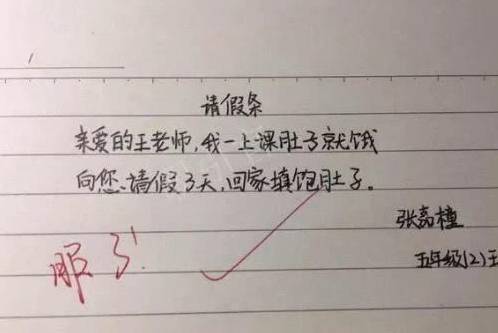 请假条
亲爱的王老师,我一上课肚子就饿
向您请假3天,回家填饱肚子。
张嘉橦
五年级(2)王
服了!